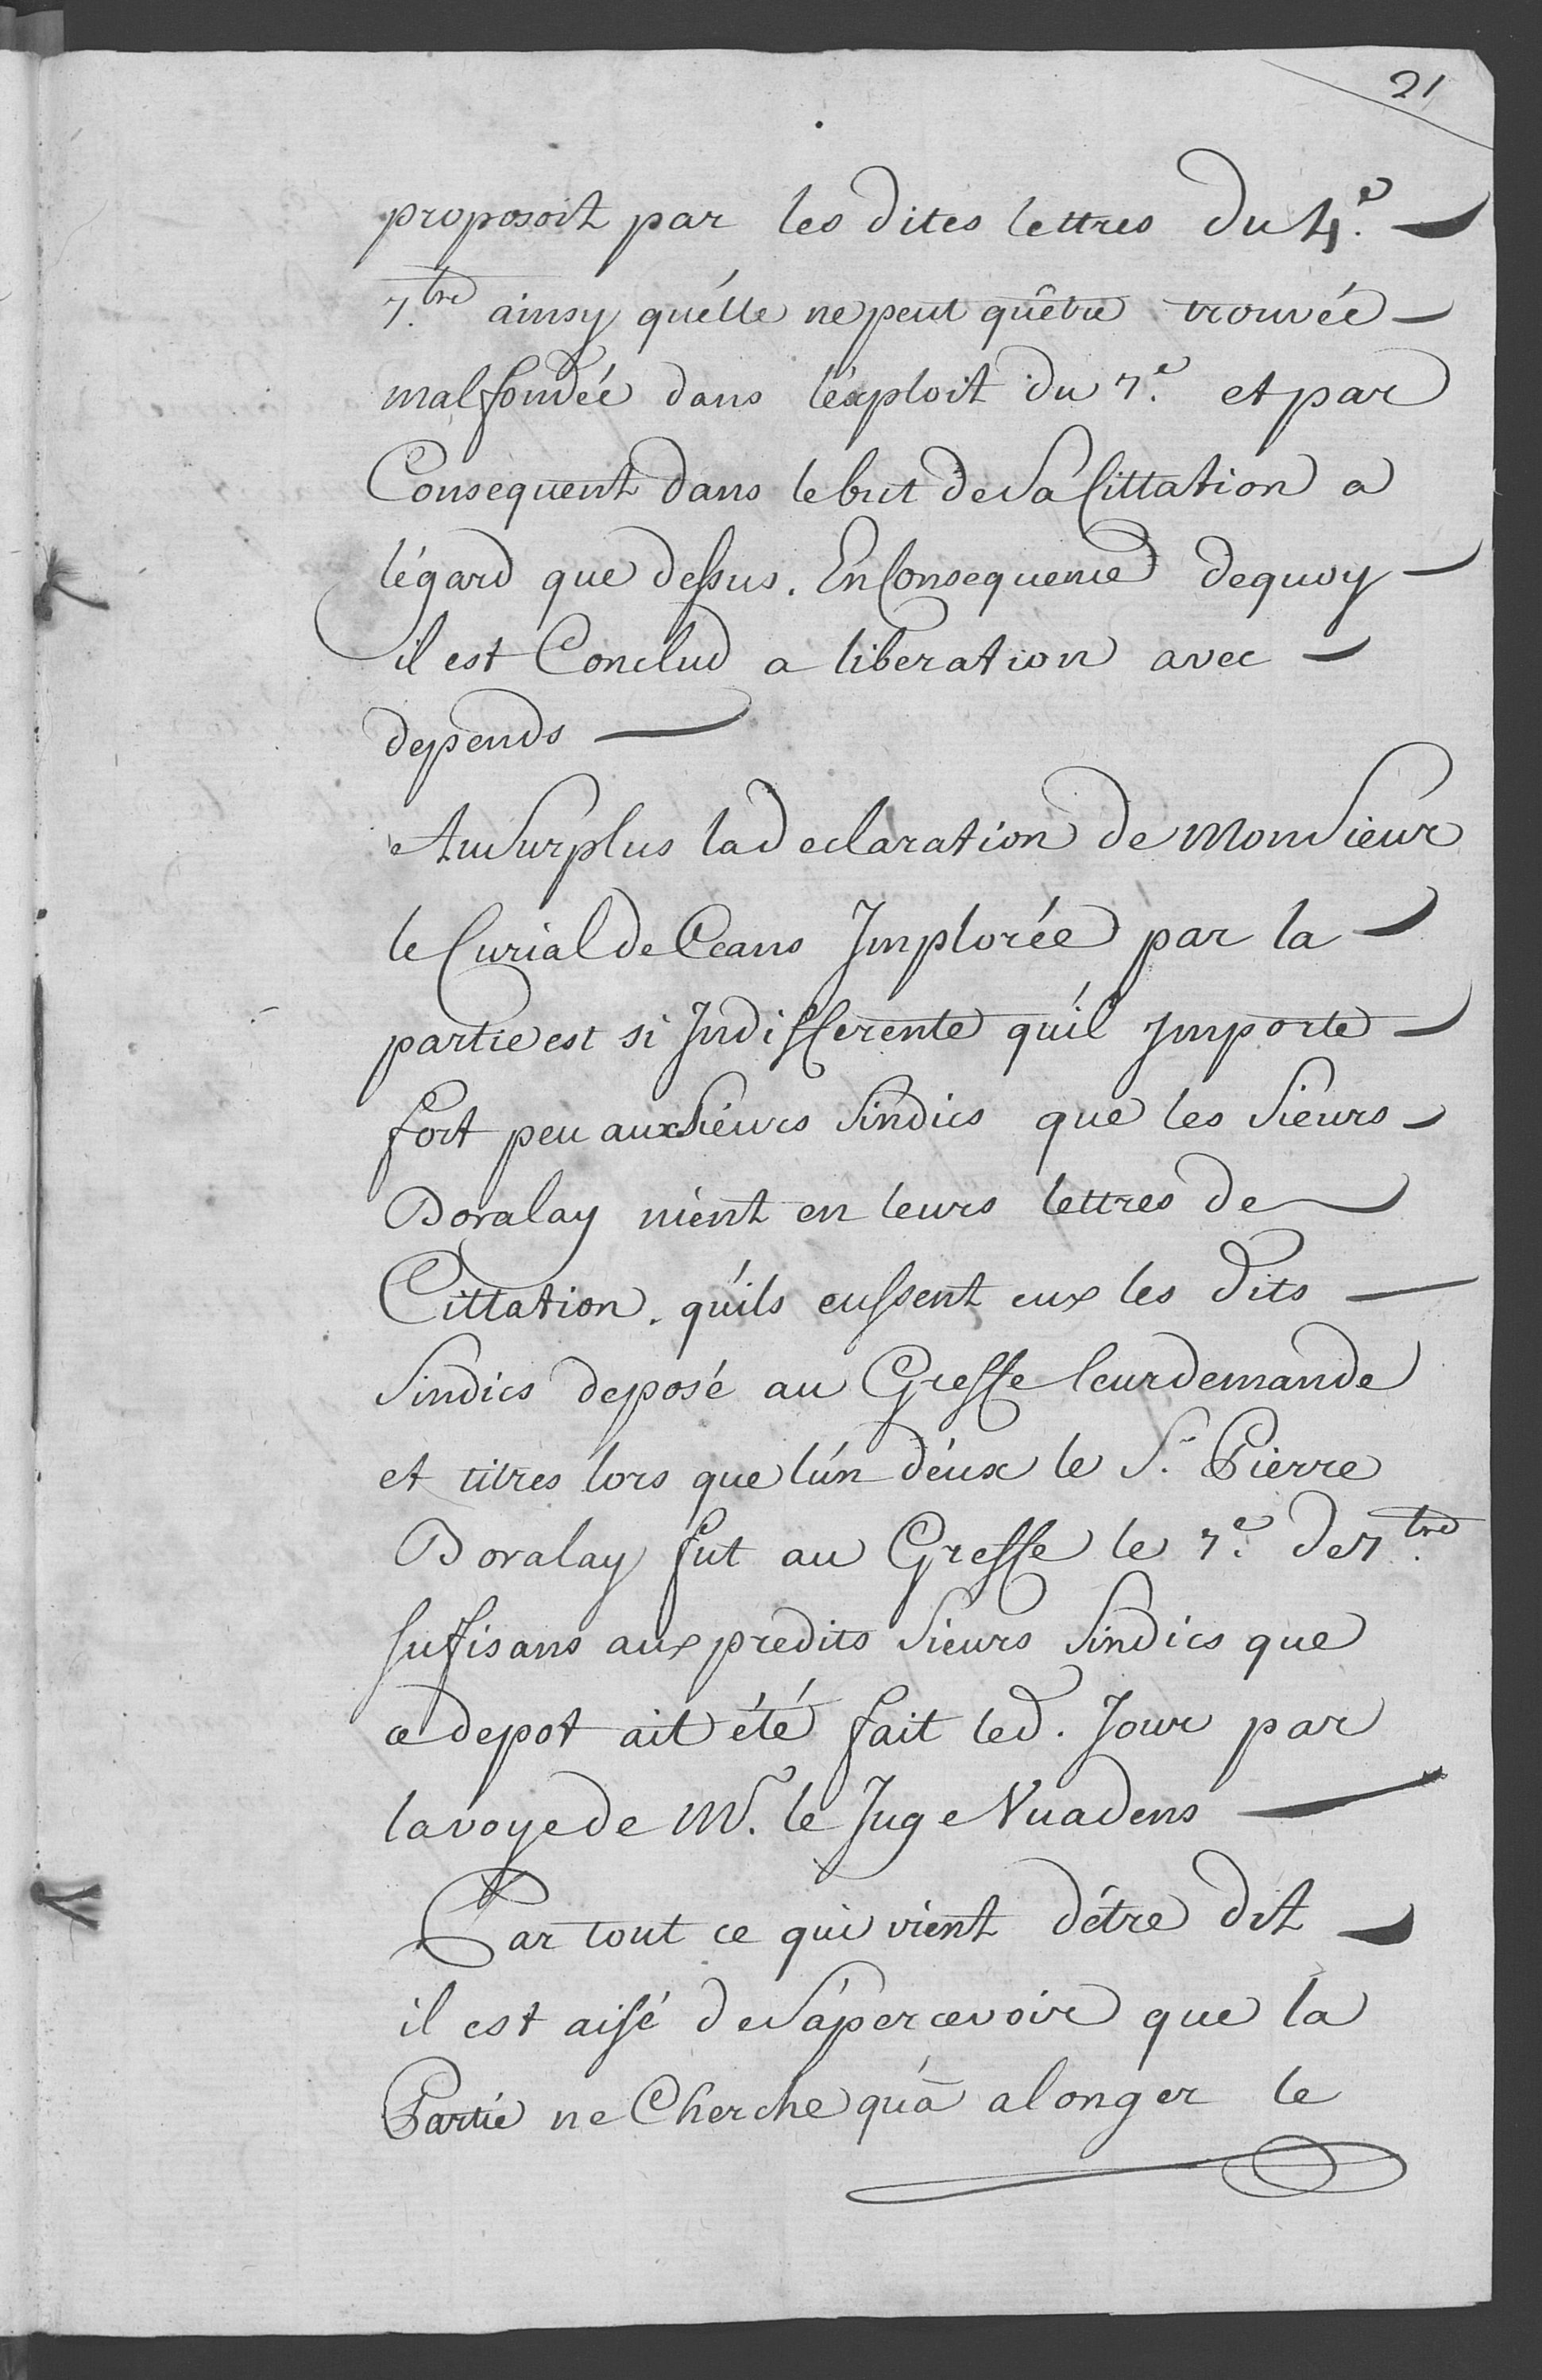 21
proposoit par les dites lettres du 4.e
7.bre ainsy qu'élle ne peut qu'être trouvéé
mal fondéé dans l'éxploit du 7.e et par
Consequent dans le but de sa Cittation a
l'égard que dessus. En Consequence dequoy
il est Conclud a liberation avec
depends
Au Surplus la declaration de Monsieur
le Curial de Ceans Implorée par la
partie est si Indifferente qu'il Importe
fort peu aux Sieurs Sindics que les Sieurs
Dovalay nient en leurs lettres de
Cittation, qu'ils eussent eux les dits
Sindics deposé au Greffe leur demande
et titres lors que l'un d'éux le S.r Pierre
Dovalay fut au Greffe le 7.e de 7.bre
sufisans aux predits Sieurs Sindics que
ce depot ait été fait led. Jour par
la voye de Mr. le Juge Vuadens
Par tout ce qui vient d'être dit
il est aisé de s'apercevoir que la
Partie ne Cherche qu'à alonger le